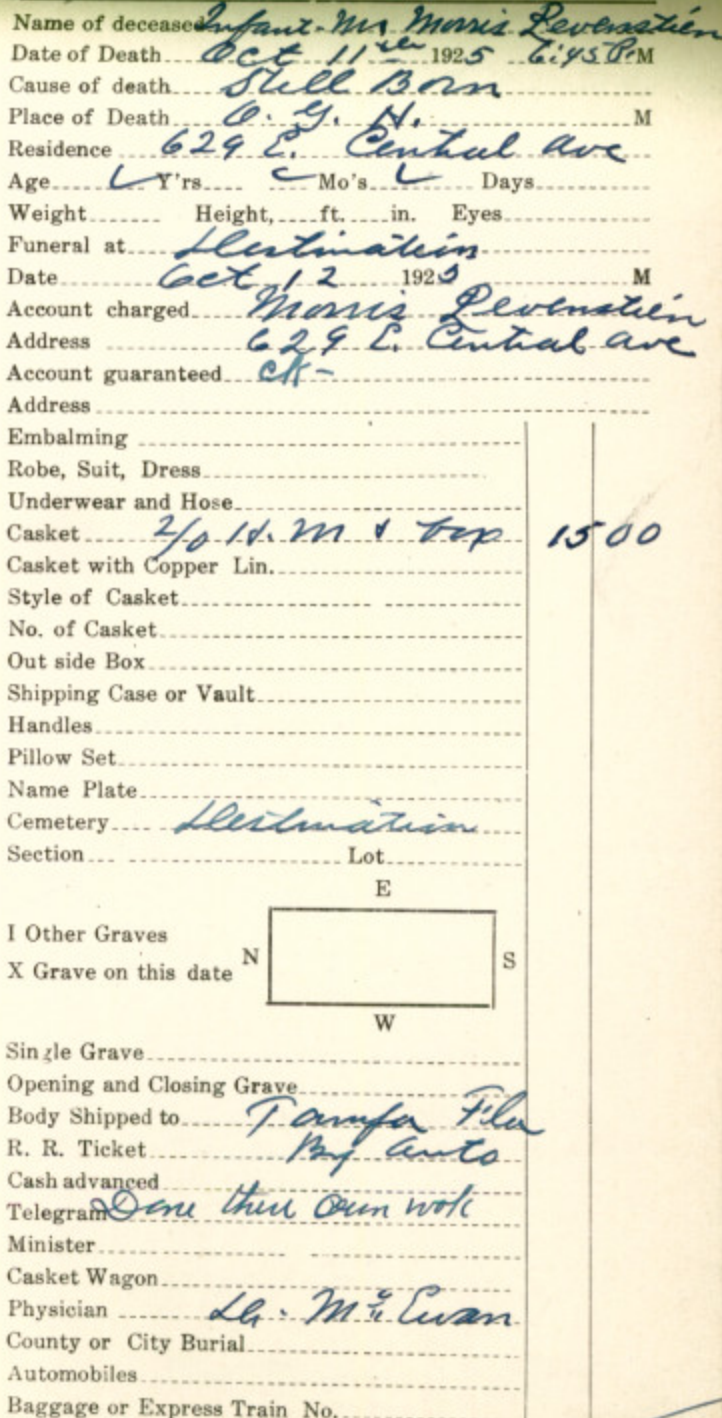 Name of deceased Infant - Mr Morris Levenstien
Date of Death Oct 11th 1925 6:45 P. M
Cause of death Still Born
Place of Death O. G. H. M
Residence 629 E. Central Ave
Age ✓ Y'rs ✓ Mo's ✓ Days
Weight Height, ft. in. Eyes
Funeral at Destination
Date Oct 12 1925 M
Account charged Morris Levenstien
Address 629 E. Central Ave
Account guaranteed ck -
Address
Embalming
Robe, Suit, Dress
Underwear and Hose
Casket 2/0 H. M & box 15 00
Casket with Copper Lin.
Style of Casket
No. of Casket
Out side Box
Shipping Case or Vault
Handles
Pillow Set
Name Plate
Cemetery Destination
Section Lot
E
I Other Graves
N S
X Grave on this date
W
Single Grave
Opening and Closing Grave
Body Shipped to Tampa Fla
R. R. Ticket By Auto
Cash advanced
Telegram Done their own work
Minister
Casket Wagon
Physician Dr. McEwan
County or City Burial
Automobiles
Baggage or Express Train No.